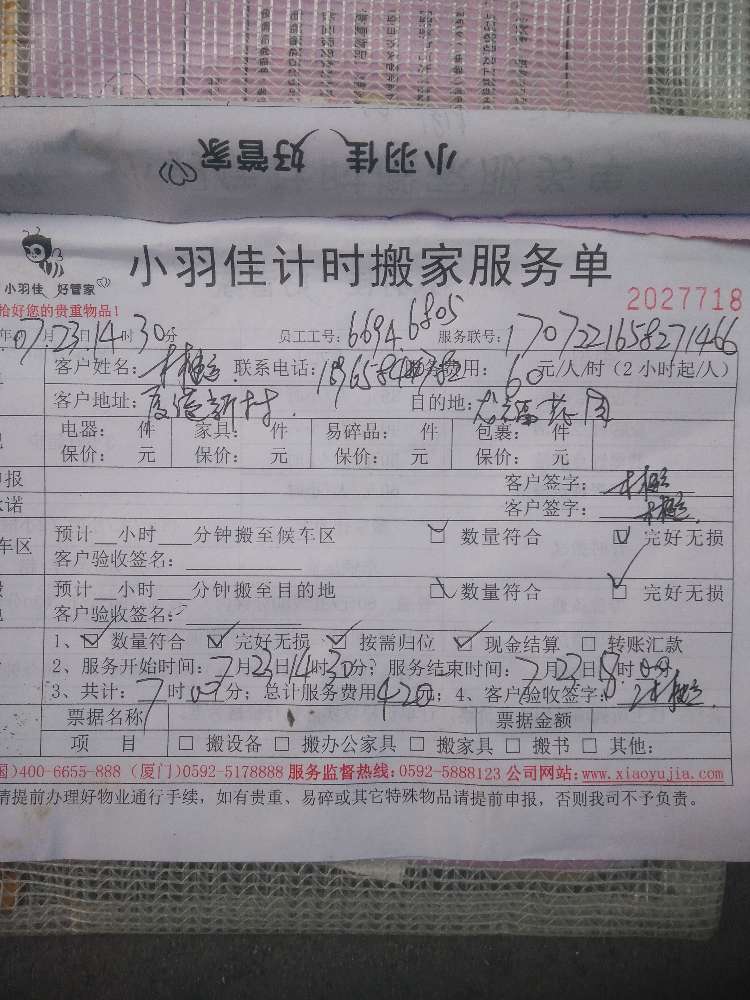 小羽佳 好管家
小羽佳 好管家
小羽佳计时搬家服务单
2027718
拾好您的贵重物品!
年07月23日14时30分 员工工号:6694.6805 服务联号:1707221658271466
客户姓名: 联系电话: 费用:60元/人/时(2小时起/人)
客户地址: 新村 目的地:
电器: 件 家具: 件 易碎品: 件 包裹: 件
保价: 元 保价: 元 保价: 元 保价: 元
报 客户签字:
诺 客户签字:
车区 预计__小时___分钟搬至候车区 数量符合 完好无损
客户验收签名:
预计__小时___分钟搬至目的地 数量符合 完好无损
客户验收签名:
1、数量符合 完好无损 按需归位 现金结算 转账汇款
2、服务开始时间:7月23日14时30分;服务结束时间:7月23日 时 分;
3、共计:7时0分;总计服务费用420元;4、客户验收签字:
票据名称 票据金额
项 目 搬设备 搬办公家具 搬家具 搬书 其他:
国)400-6655-888 (厦门)0592-5178888 服务监督热线:0592-5888123 公司网站:www.xiaoyujia.com
请提前办理好物业通行手续，如有贵重、易碎或其它特殊物品请提前申报，否则我司不予负责。